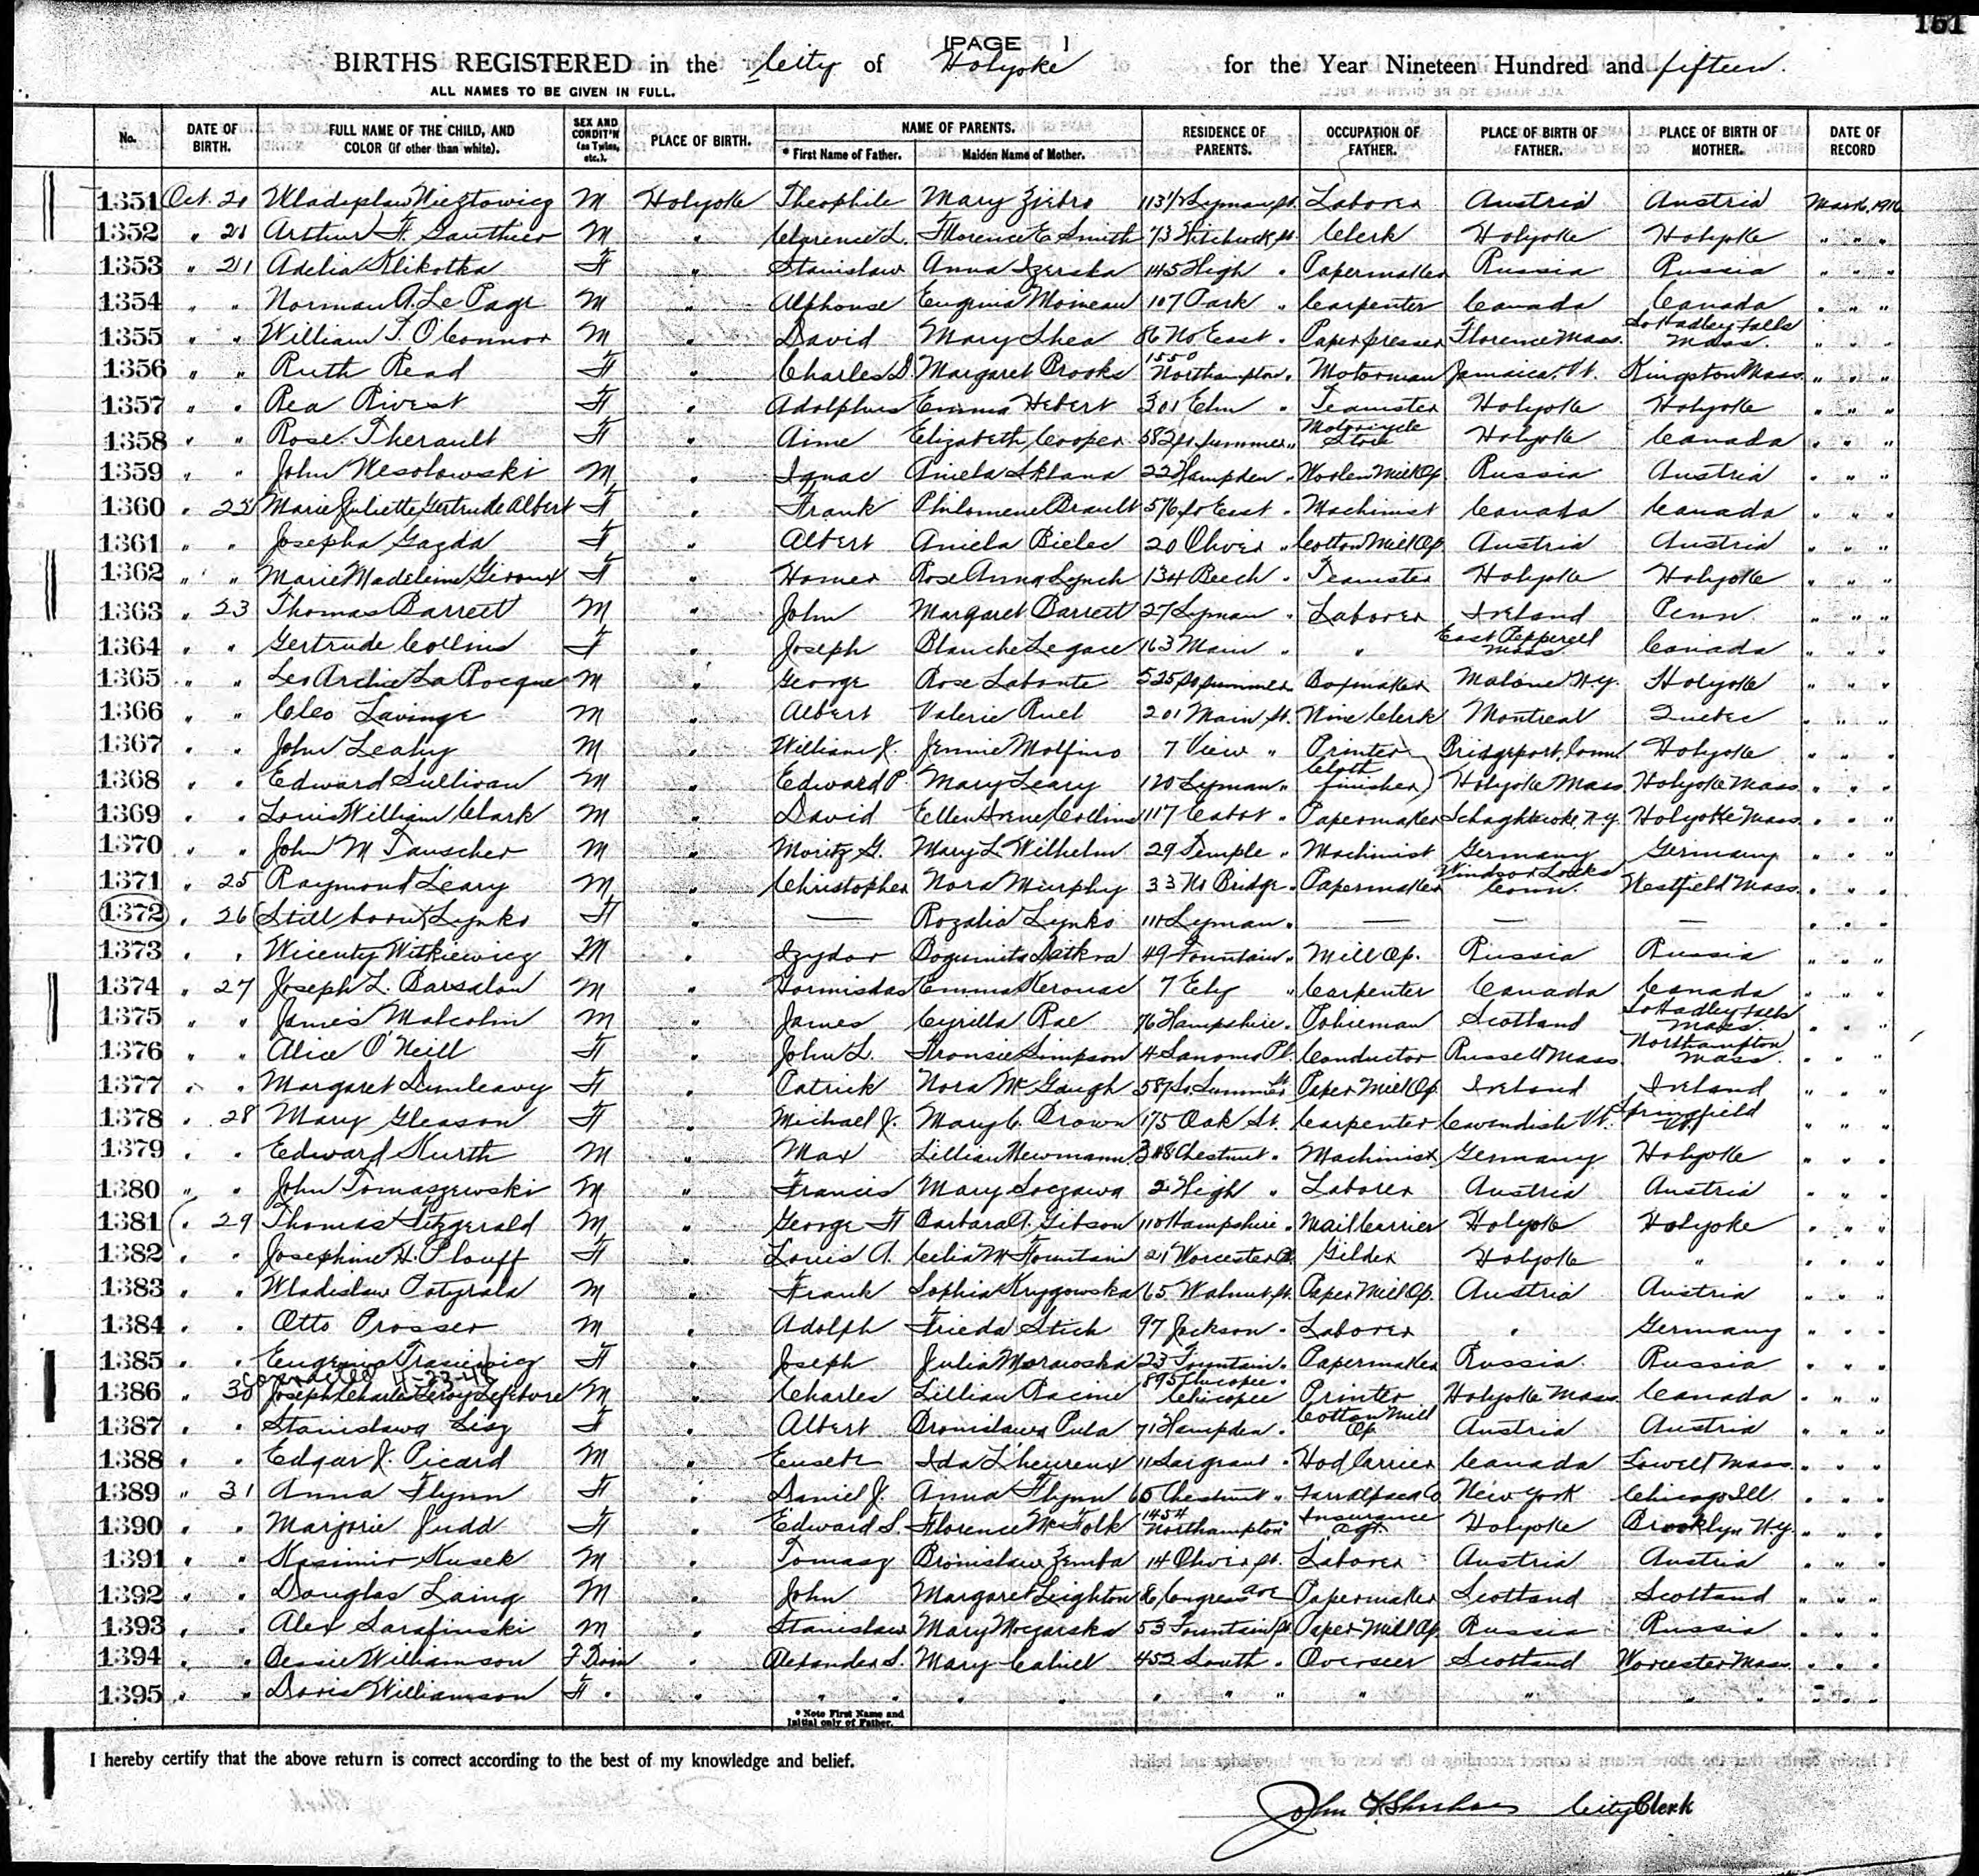 151
[PAGE ]
BIRTHS REGISTERED in the City of Holyoke for the Year Nineteen Hundred and fifteen.
ALL NAMES TO BE GIVEN IN FULL.
No. DATE OF BIRTH. FULL NAME OF THE CHILD, AND COLOR (if other than white). SEX AND CONDIT'N (as Twins, etc.). PLACE OF BIRTH. NAME OF PARENTS. * First Name of Father. Maiden Name of Mother. RESIDENCE OF PARENTS. OCCUPATION OF FATHER. PLACE OF BIRTH OF FATHER. PLACE OF BIRTH OF MOTHER. DATE OF RECORD
1351 Oct. 21 M Holyoke Theophile Mary Ziebro 113 1/2 Lyman st. Laborer Austria Austria Mar. 16, 1916
1352 " 21 Arthur F. Gauthier M " Clarence L. Florence E. Smith 73 Hitchcock st. Clerk Holyoke Holyoke " " "
1353 " 21 Adelia Klikotka F " Stanislaw Anna Izerska 145 High " Papermaker Russia Russia " " "
1354 " " Norman A. Le Page M " Alphonse Eugenia Moineau 107 Park " Carpenter Canada Canada " " "
1355 " " William T. O'Connor M " David Mary Shea 86 No East " Paper presser Florence Mass. So Hadley Falls Mass. " " "
1356 " " Ruth Read F " Charles D. Margaret Brooks 1550 Northampton " Motorman Jamaica, Vt. Kingston Mass. " " "
1357 " " Rea Rivest F " Adolphus Emma Hebert 301 Elm " Teamster Holyoke Holyoke " " "
1358 " " Rose Therault F " Aime Elizabeth Cooper 582 So Summer " Motorcycle Store Holyoke Canada " " "
1359 " " John Wesolowski M " Ignac Aniela Sklana 22 Hampden " Woolen Mill Op. Russia Austria " " "
1360 " 25 Marie Juliette Gertrude Albert F " Frank Philomene Brault 576 So East " Machinist Canada Canada " " "
1361 " " Josepha Gazda F " Albert Aniela Bielec 20 Oliver " Cotton Mill Op. Austria Austria " " "
1362 " " Marie Madeleine Giroux F " Homer Rose Anna Lynch 134 Beech " Teamster Holyoke Holyoke " " "
1363 " 23 Thomas Barrett M " John Margaret Barrett 27 Lyman " Laborer Ireland Penn. " " "
1364 " " Gertrude Collins F " Joseph Blanche Legace 163 Main " " East Pepperell Mass Canada " " "
1365 " " Leo Archie La Rocque M " George Rose Labonte 525 So Summer " Boxmaker Malone N.Y. Holyoke " " "
1366 " " Cleo Lavinge M " Albert Valerie Ruel 201 Main st. Wine Clerk Montreal Quebec " " "
1367 " " John Leahy M " William J. Jennie Molfino 7 View " Printer Bridgeport, Conn. Holyoke " " "
1368 " " Edward Sullivan M " Edward P. Mary Leary 120 Lyman " Cloth finisher Holyoke Mass Holyoke Mass. " " "
1369 " " Louis William Clark M " David Ellen Irene Collins 117 Cabot " Papermaker Schaghticoke, N.Y. Holyoke Mass. " " "
1370 " " John M Tauscher M " Moritz G. Mary L. Wilhelm 29 Temple " Machinist Germany Germany " " "
1371 " 25 Raymond Leary M " Christopher Nora Murphy 33 No Bridge " Papermaker Windsor Locks Conn. Westfield Mass. " " "
1372 " 26 (Still born) Lynko F " — Rozalia Lynko 111 Lyman " — — — " " "
1373 " " Wicenty Witkiewicz M " Izydor 49 Fountain " Mill Op. Russia Russia " " "
1374 " 27 Joseph L. Barsalou M " Hormisdas Emma Kerouac 7 Ely " Carpenter Canada Canada " " "
1375 " " James Malcolm M " James Cyrilla Rae 76 Hampshire " Policeman Scotland So Hadley Falls Mass. " " "
1376 " " Alice O'Neill F " John L. Fronsie Simpson 4 Sonoma Pl. Conductor Russell Mass. Northampton Mass. " " "
1377 " " Margaret Dunleavy F " Patrick Nora McGaugh 587 So Summer St Paper Mill Op Ireland Ireland " " "
1378 " 28 Mary Gleason F " Michael J. Mary C. Brown 175 Oak St. Carpenter Cavendish Vt. Springfield Vt " " "
1379 " " Edward Kurth M " Max Lillian Newmann 348 Chestnut " Machinist Germany Holyoke " " "
1380 " " John Tomaszewski M " Francis Mary Soczawa 2 High " Laborer Austria Austria " " "
1381 " 29 Thomas Fitzgerald M " George F Barbara A. Gibson 110 Hampshire " Mail Carrier Holyoke Holyoke " " "
1382 " " Josephine H. Plouff F " Louis A. Celia M Fountain 21 Worcester Pl. Gilder Holyoke " " " "
1383 " " Wladislaw Potyrala M " Frank Sophia Krygowska 65 Walnut st. Paper Mill Op. Austria Austria " " "
1384 " " Otto Prosser M " Adolph Frieda Stich 97 Jackson " Laborer " Germany " " "
1385 " " Eugenia F " Joseph Julia Morawska 23 Fountain " Papermaker Russia Russia " " "
Corrected 4-23-41
1386 " 30 Joseph Charles Leroy Lefebvre M " Charles Lillian Racine 895 Chicopee " Chicopee Printer Holyoke Mass. Canada " " "
1387 " " Stanislawa Lisz F " Albert Bronislawa Pula 71 Hampden " Cotton Mill Op Austria Austria " " "
1388 " " Edgar J. Picard M " Eusebe Ida L'heureux 11 Sargeant " Hod Carrier Canada Lowell Mass. " " "
1389 " 31 Anna Flynn F " Daniel J. Anna Flynn 65 Chestnut " Farr Alpaca Co New York Chicago Ill. " " "
1390 " " Marjorie Judd F " Edward S. Florence McFolk 1454 Northampton " Insurance agt. Holyoke Brooklyn N.Y. " " "
1391 " " Kasimir Kusek M " Tomasz Bronislaw Zemba 14 Oliver st. Laborer Austria Austria " " "
1392 " " Douglas Laing M " John Margaret Leighton 86 Congress ave Papermaker Scotland Scotland " " "
1393 " " Alex Sarafinski M " Stanislaw Mary Moczarska 53 Fountain st. Paper Mill Op. Russia Russia " " "
1394 " " Bessie Williamson F Twin " Alexander S. Mary Cahill 452 South " Overseer Scotland Worcester Mass. " " "
1395 " " Doris Williamson F " " " " " " " " " " " " " " " "
* Note First Name and Initial only of Father.
I hereby certify that the above return is correct according to the best of my knowledge and belief.
John F. Sheehan City Clerk